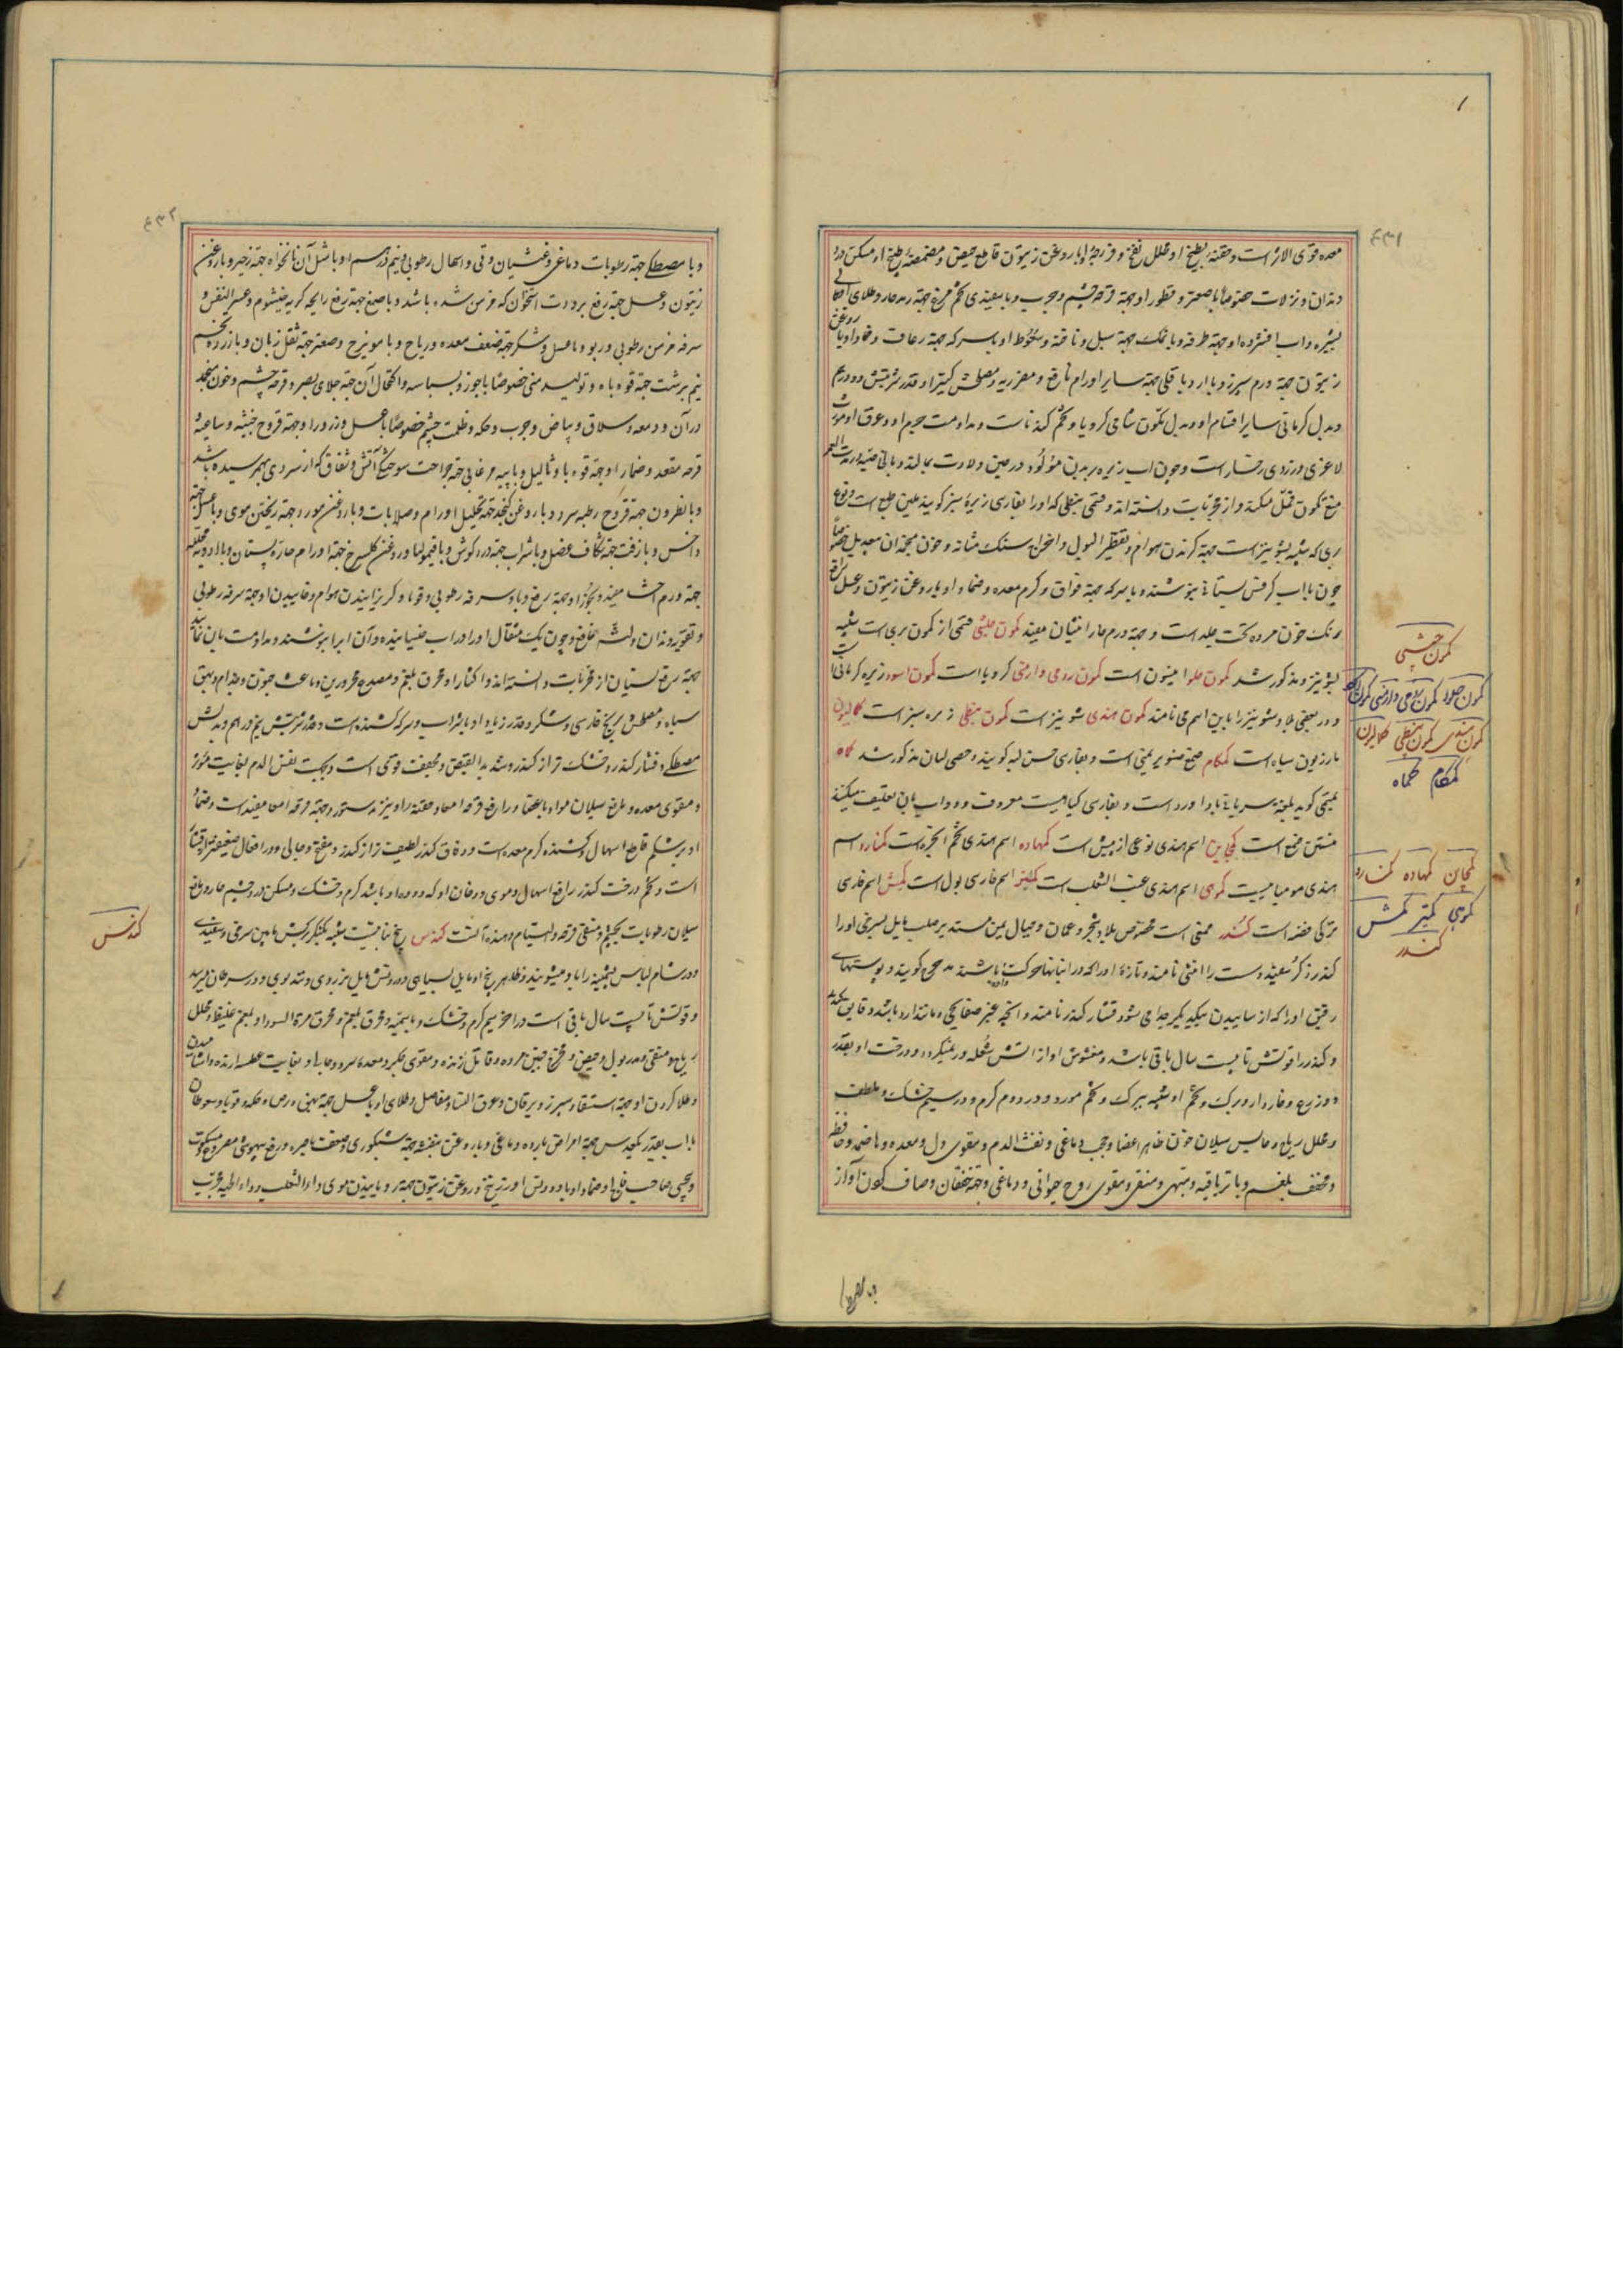 ۴۳۱
معده قوی الاثر است و حقنه بطبیخ او محلل نفخ و فرزجهٔ او با روغن زیتون قاطع حیض و مضمضهٔ طبیخ او مسکن درد
دندان و نزلات خصوصاً با صعتر و قطور او جهة قرحه چشم و جرب و با سفیدی تخم مرغ جهة رمد حار و طلای
بشیره و آب افشردهٔ او جهة طرفه و با نمک جهة سبل و ناخنه و سعوط او با سرکه جهة رعاف و ضماد او با روغن
زیتون جهة ورم سپرز و با آرد باقلی جهة سایر اورام نافع و مضر ریه و مصلحش کتیرا و قدر شربتش دو درهم
و بدل کرمانی سایر اقسام او و بدل کمون شامی کرویا و تخم کندناست و مداومت جرم او و عرق او مورث
لاغری و زردی رخسار است و چون آب زیره بر بدن مولود در حین ولادت بمالند
منع تکون قمل میکند و از مجربات دانسته اند و قسمی نبطی که او را بفارسی زیرهٔ سبز گویند ملین طبع است و نوع
بری که شبیه بشونیز است جهة گزیدن هوام و تقطیر البول و اخراج سنگ مثانه و خون منجمد آن معدیل خصوصاً
چون با آب کرفس بستانی بنوشند و با سرکه جهة فواق و کرم معده و ضماد او با روغن زیتون و عسل رافع
رنگ خون مرده تحت جلد است و جهة ورم حار انثیان مفید کمون حبشی قسمی از کمون بری است شبیه
بشونیز و مذکور شد کمون حلو انیسون است کمون رومی و ارمنی کرویا است کمون اسود زیره کرمانی است
و در بعضی بلاد شونیز را باین اسم می نامند کمون هندی شونیز است کمون نبطی زیره سبز است کمالیون
مازریون سیاه است کمکام صمغ صنوبر یمنی است و بفارسی حسن لبه گویند و حصی لبان مذکور شد کماه
منتن فتح است کمچاین اسم هندی نوعی از پیش است کمهاده اسم هندی تخم انجره است کمنارو اسم
هندی مومیاییست کموهی اسم هندی عنب الثعلب است کمیز اسم فارسی بول است کمش اسم فارسی
ترکی فضه است کندر صمغی است مخصوص بلاد شحر و عمان و جبال یمن مستدیر صلب مایل بسرخی او را
کندر ذکر و سفید و سست را انثی نامند و تازهٔ او را که در انبانها حرکت داده باشند مدحرج گویند و پوستهای
رقیق او را که از ساییدن بیکدیگر جدا می شود قشار کندر نامند و آنچه غیر صفایحی و مانند آرد باشد دقاق کندر
و کندر را قوتش تا بیست سال باقی باشد و مغشوش او از آتش شعله ور نمیگردد و درخت او بقدر
دو ذرع و خاردار و برگ و تخم او شبیه ببرگ و تخم مورد و در دوم گرم و در سیم خشک و ملطف
و محلل ریاح و حابس سیلان خون ظاهر اعضا و حجب دماغی و نفث الدم و مقوی دل و معده و هاضمه و حافظه
و مجفف بلغم و با تریاقیه و مشهی و مفرح و مقوی روح حیوانی و دماغی و جهة خفقان و صاف کردن آواز
کمون حبشی
کمون حلو کمون رومی و ارمنی کمون
کمون هندی کمون نبطی کمالیون
کمکام کماه
کمچاین کمهاده کمنارو
کموهی کمیز کمش
کندر
۴۳۲
و با مصطکی جهة رطوبات دماغی و غشیان و قی و اسهال رطوبی و نیم درهم او با مثل آن نانخواه جهة زحیر و با روغن
زیتون و عسل جهة رفع برودت استخوان که مزمن شده باشد و با صمغ جهة رفع رایحه کریه خیشوم و عسر النفس و
سرفه مزمن رطوبی و ربو و با عسل و شکر جهة ضعف معده و ریاح و با مویزج و صعتر جهة ثقل زبان و با زرده تخم
نیم برشت جهة قوه باه و تولید منی خصوصاً با جوز و بسباسه و اکتحال آن جهة جلای بصر و قرحه چشم و خون منجمد
در آن و دمعه و سلاق و بیاض و جرب و حکه و ظلمت چشم خصوصاً با عسل و ذرور او جهة قروح خبیثه و ساعیه
قرحه مقعد و ضماد او جهة قوبا و ثآلیل و با پیه مرغابی جهة جراحت سوختگی آتش و شقاق که از سردی بهم رسیده باشد
و با نطرون جهة قروح رطبه سر و با روغن کنجد جهة تحلیل اورام و صلابات و با روغن مورد جهة ریختن موی و با عسل جهة
داخس و با زفت جهة شکاف عضل و با شراب جهة درد گوش و با قیمولیا و روغن گلسرخ جهة اورام حاره پستان و با ادویه محلله
جهة ورم احشا مفید و بخور او جهة رفع وبا و سرفه رطوبی و قوبا و گریزانیدن هوام و خاییدن او جهة سرفه رطوبی
و تقویه دندان و لثه نافع و چون یک مثقال او را در آب خیسانیده و آن آب را بنوشند و مداومت بآن نمایند
جهة رفع نسیان از مجربات دانسته اند و اکثار او محرق بلغم و مصدع محرورین و باعث جنون و جذام و بهق
سیاه و معطش و برنج فارسی و شکر و قدر زیاد او با شراب و سرکه کشنده است و قدر شربتش نیم درهم و بدلش
مصطکی و قشار کندر خشک تر از کندر و شدید القبض و مجفف قوی است و جهت نفث الدم بغایت مؤثر
و مقوی معده و مانع سیلان مواد باعضا و رافع قرحه امعا و حقنه او نیز بدستور و جهة قرحه امعا مفید است و ضماد
او بر شکم قاطع اسهال و کشنده کرم معده است و دقاق کندر لطیف تر از کندر و مفتح و جالی و در افعال ضعیفتر از قشار
است و تخم درخت کندر رافع اسهال دموی و دخان او که دوده او باشد گرم و خشک و مسکن درد چشم حار و مانع
سیلان رطوبات بچشم و منقی قرحه و التیام دهنده آنست کندس بیخ نباتیست شبیه بکنگر برگش مابین سرخی و سفیدی
و در شام لباس پشمینه را با او میشویند و ظاهر بیخ او مایل بسیاهی و درونش مایل بزردی و تند بوی و در سرطان میرسد
و قوتش تا بیست سال باقی است در آخر سیم گرم و خشک و با سمیه و محرق بلغم و محرق مرة السودا و بلغم غلیظ و محلل
ریاح و منقی و مدر بول و حیض و مخرج جنین مرده و قاتل زنده و مقوی جگر و معده سرد و جالی و بغایت عطسه آرنده و آشامیدن
و طلا کردن او جهة استسقا و سپرز و یرقان و عرق النسا و مفاصل و طلای او با عسل جهة بهق و برص و حکه و قوبا و سعوط آن
با آب بقدر یکعدس جهة امراض بارده دماغی و با روغن بنفشه جهة شبکوری و ضعف باصره و رفع بیهوشی مصروع و سکوت
و ضماد او با دوده و آس و زرنیخ و روغن زیتون جهة رویانیدن موی و داء الثعلب و داء الحیه مجرب
کندس